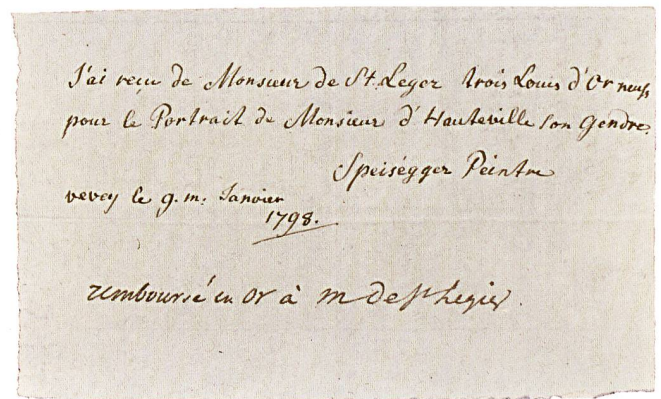 J'ai reçu de Monsieur de St. Leger trois Louis d'Or neufs
pour le Portrait de Monsieur d'Hauteville son Gendre.
Speisègger Peintre
vevey le 9. m: Janvier
1798.
remboursé en Or à m de St Legier.